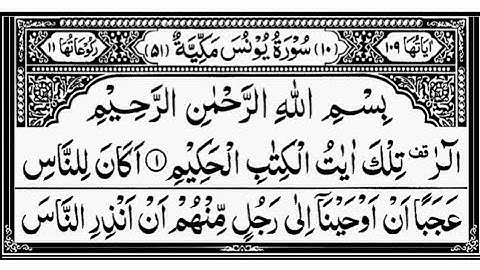 اٰيَاتُهَا ١٠٩ (١٠) سُوْرَةُ يُوْنُسَ مَكِّيَّةٌ (٥١) رُكُوْعَاتُهَا ١١
بِسْمِ اللّٰهِ الرَّحْمٰنِ الرَّحِيْمِ
الٓرٰ قف تِلْكَ اٰيٰتُ الْكِتٰبِ الْحَكِيْمِ ۝١ اَكَانَ لِلنَّاسِ
عَجَبًا اَنْ اَوْحَيْنَآ اِلٰى رَجُلٍ مِّنْهُمْ اَنْ اَنْذِرِ النَّاسَ